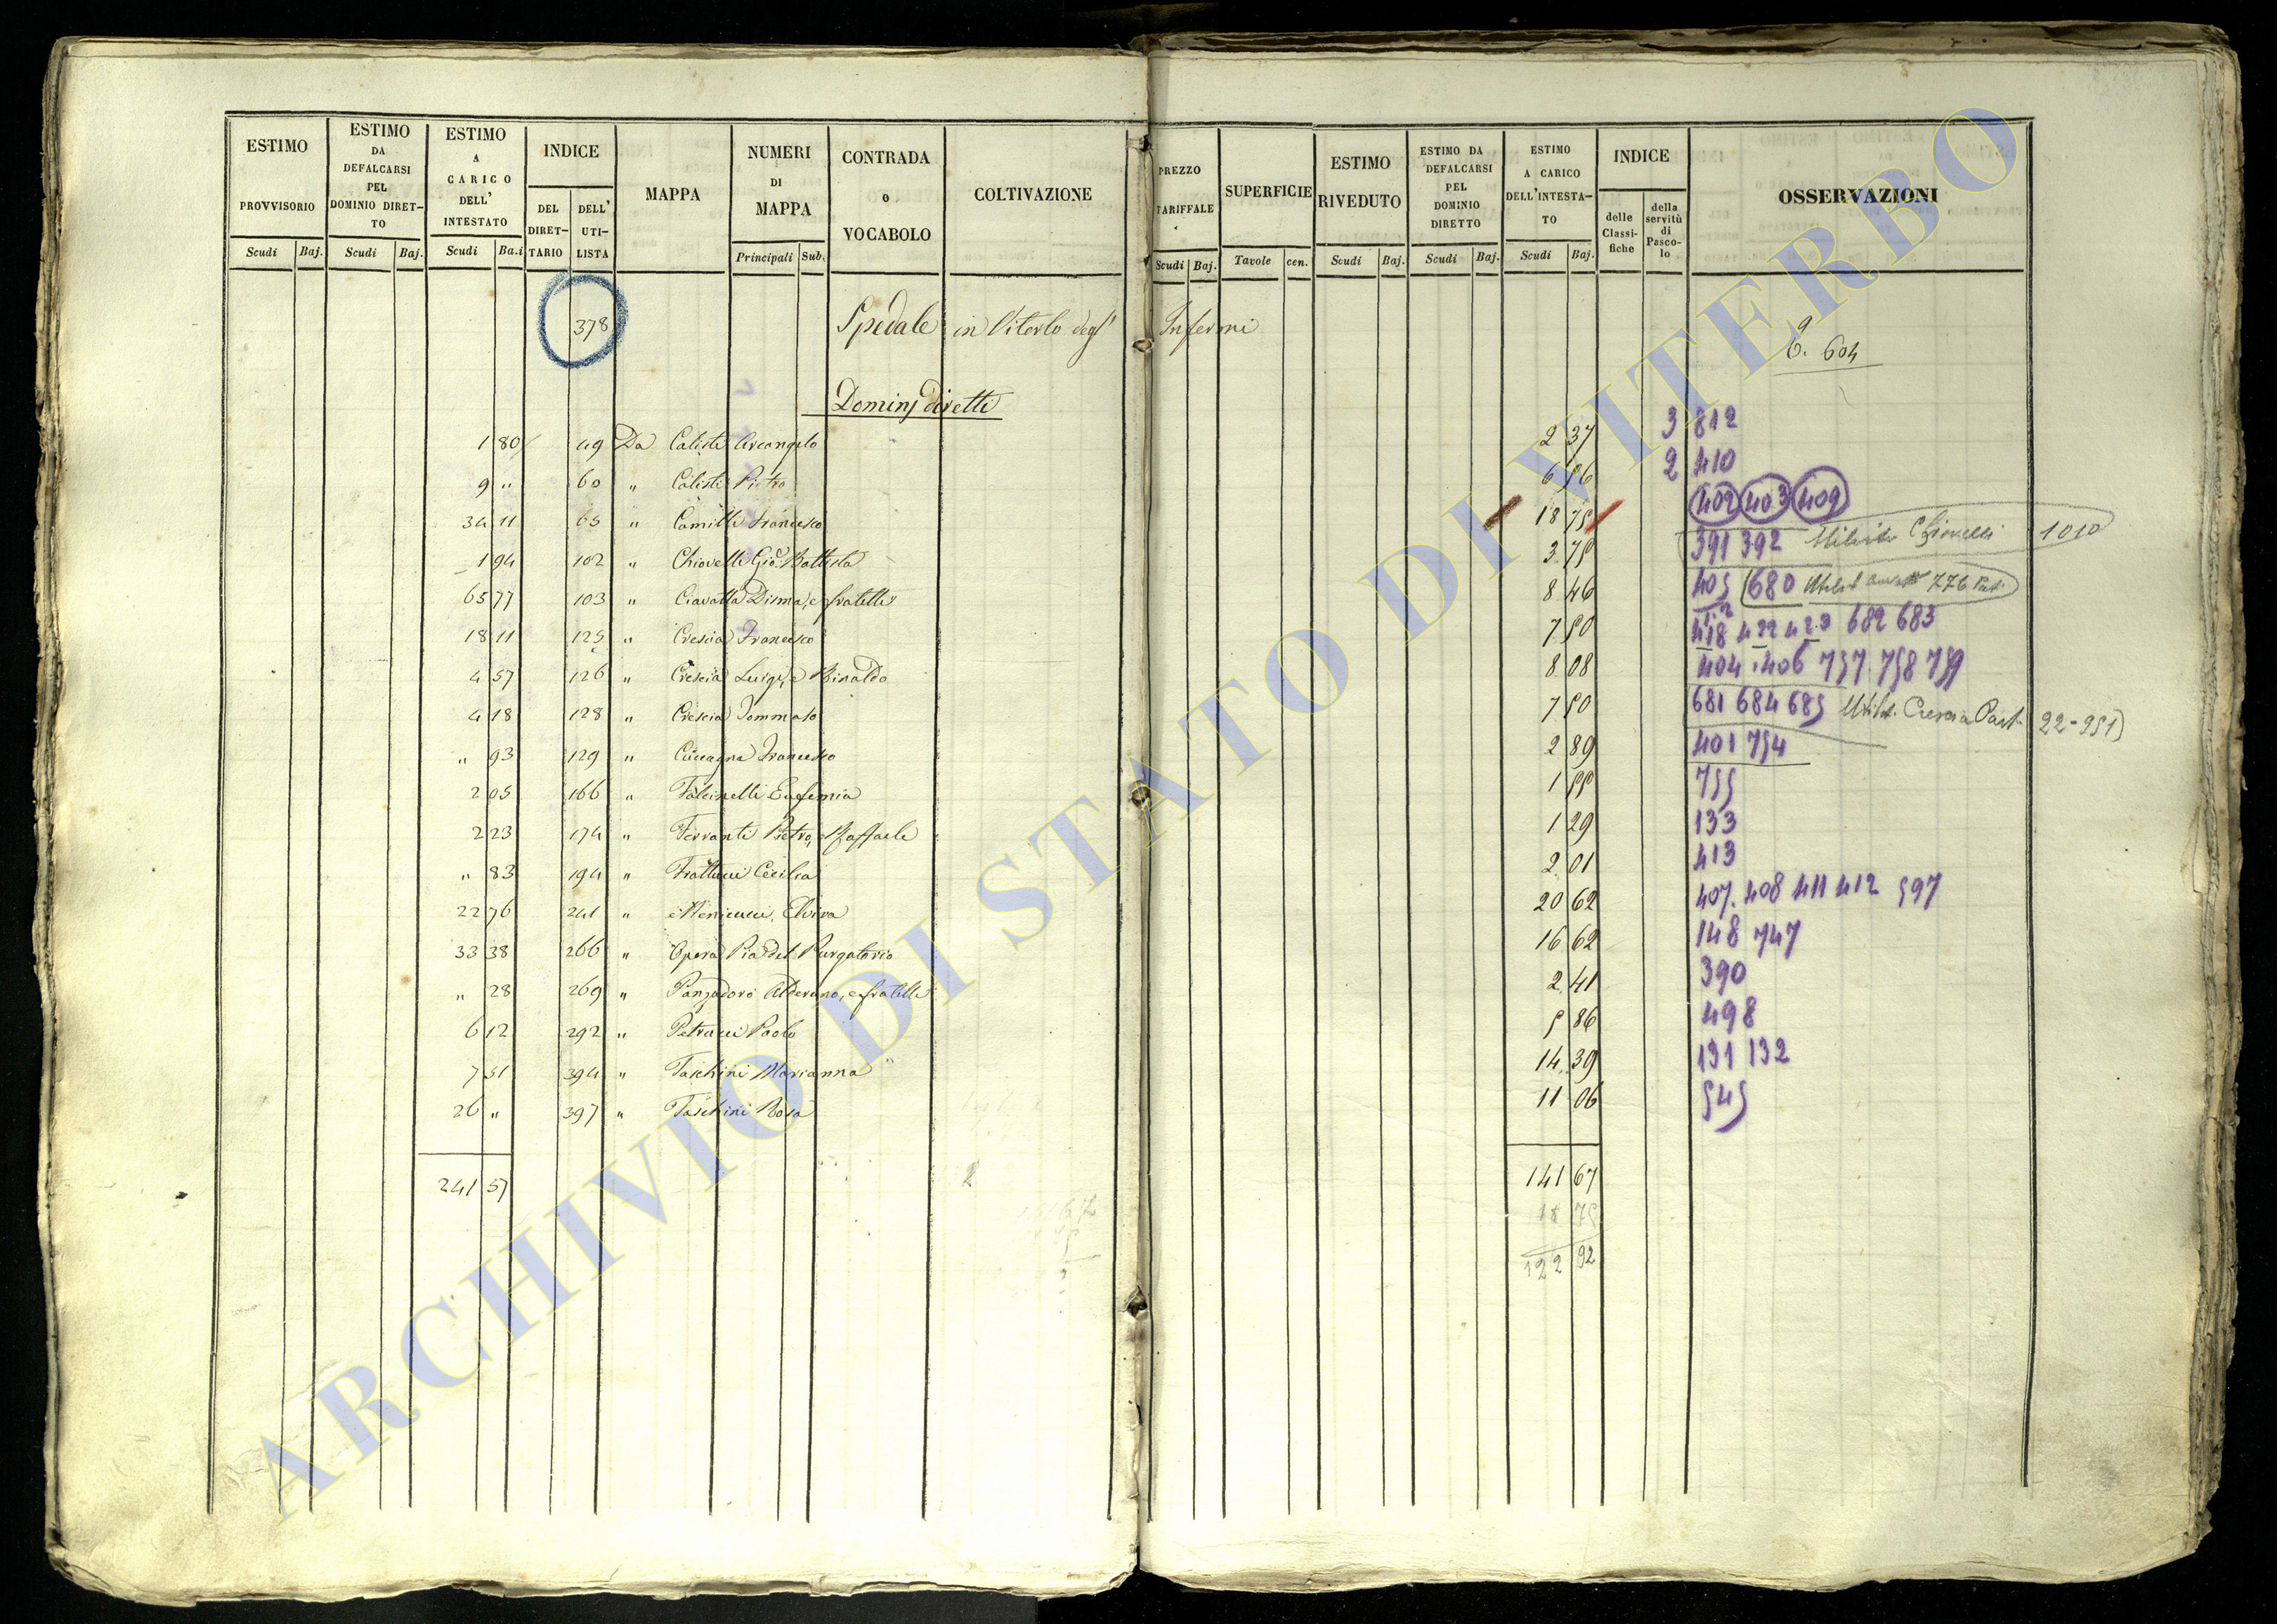 ESTIMO PROVVISORIO Scudi Baj.
ESTIMO DA DEFALCARSI PEL DOMINIO DIRET-TO Scudi Baj.
ESTIMO A CARICO DELL' INTESTATO Scudi Ba.i
INDICE DEL DIRET-TARIO DELL' UTI-LISTA
MAPPA
NUMERI DI MAPPA Principali Sub.
CONTRADA o VOCABOLO
COLTIVAZIONE
PREZZO TARIFFALE Scudi Baj.
SUPERFICIE Tavole cen.
ESTIMO RIVEDUTO Scudi Baj.
ESTIMO DA DEFALCARSI PEL DOMINIO DIRETTO Scudi Baj.
ESTIMO A CARICO DELL'INTESTA-TO Scudi Baj.
INDICE delle Classi-fiche della servitù di Pasco-lo
OSSERVAZIONI
378 Spedale in Viterbo degl' Infermi
6. 604
Dominj diretti
1 80 49 Da Calisti Arcangelo 2 37 3 812
9 " 60 " Calisti Pietro 6 56 2 410
34 11 65 " Camilli Francesco 18 75 402 403 409
1 94 102 " Chiovelli Gio. Battista 3 75 391 392 Chiovelli 1010
65 77 103 " Ciavatta Disma, e fratelli 8 46 405 680 776
18 11 125 " Crescia Francesco 7 50 418 422 423 682 683
4 57 126 " Crescia Luigi, e Rinaldo 8 08 404 406 757 758 759
4 18 128 " Crescia Tommaso 7 50 681 684 685 Utilist. Crescia Part. 22-951
" 93 129 " Cuccagna Francesco 2 89 401 754
2 05 166 " Falcinelli Eufemia 1 55 755
2 23 174 " Ferranti Pietro, e Raffaele 1 29 133
" 83 194 " Frattucci Cecilia 2 01 413
22 76 241 " Menicucci Elvira 20 62 407. 408 411 412 597
33 38 266 " Opera Pia del Purgatorio 16 62 148 747
" 28 269 " Panzadoro Alderano, e fratelli 2 41 390
6 12 292 " Petrucci Paolo 5 86 498
7 51 394 " Taschini Marianna 14 39 131 132
26 " 397 " Taschini Rosa 11 06 545
241 57 141 67
18 75
122 92
ARCHIVIO DI STATO DI VITERBO